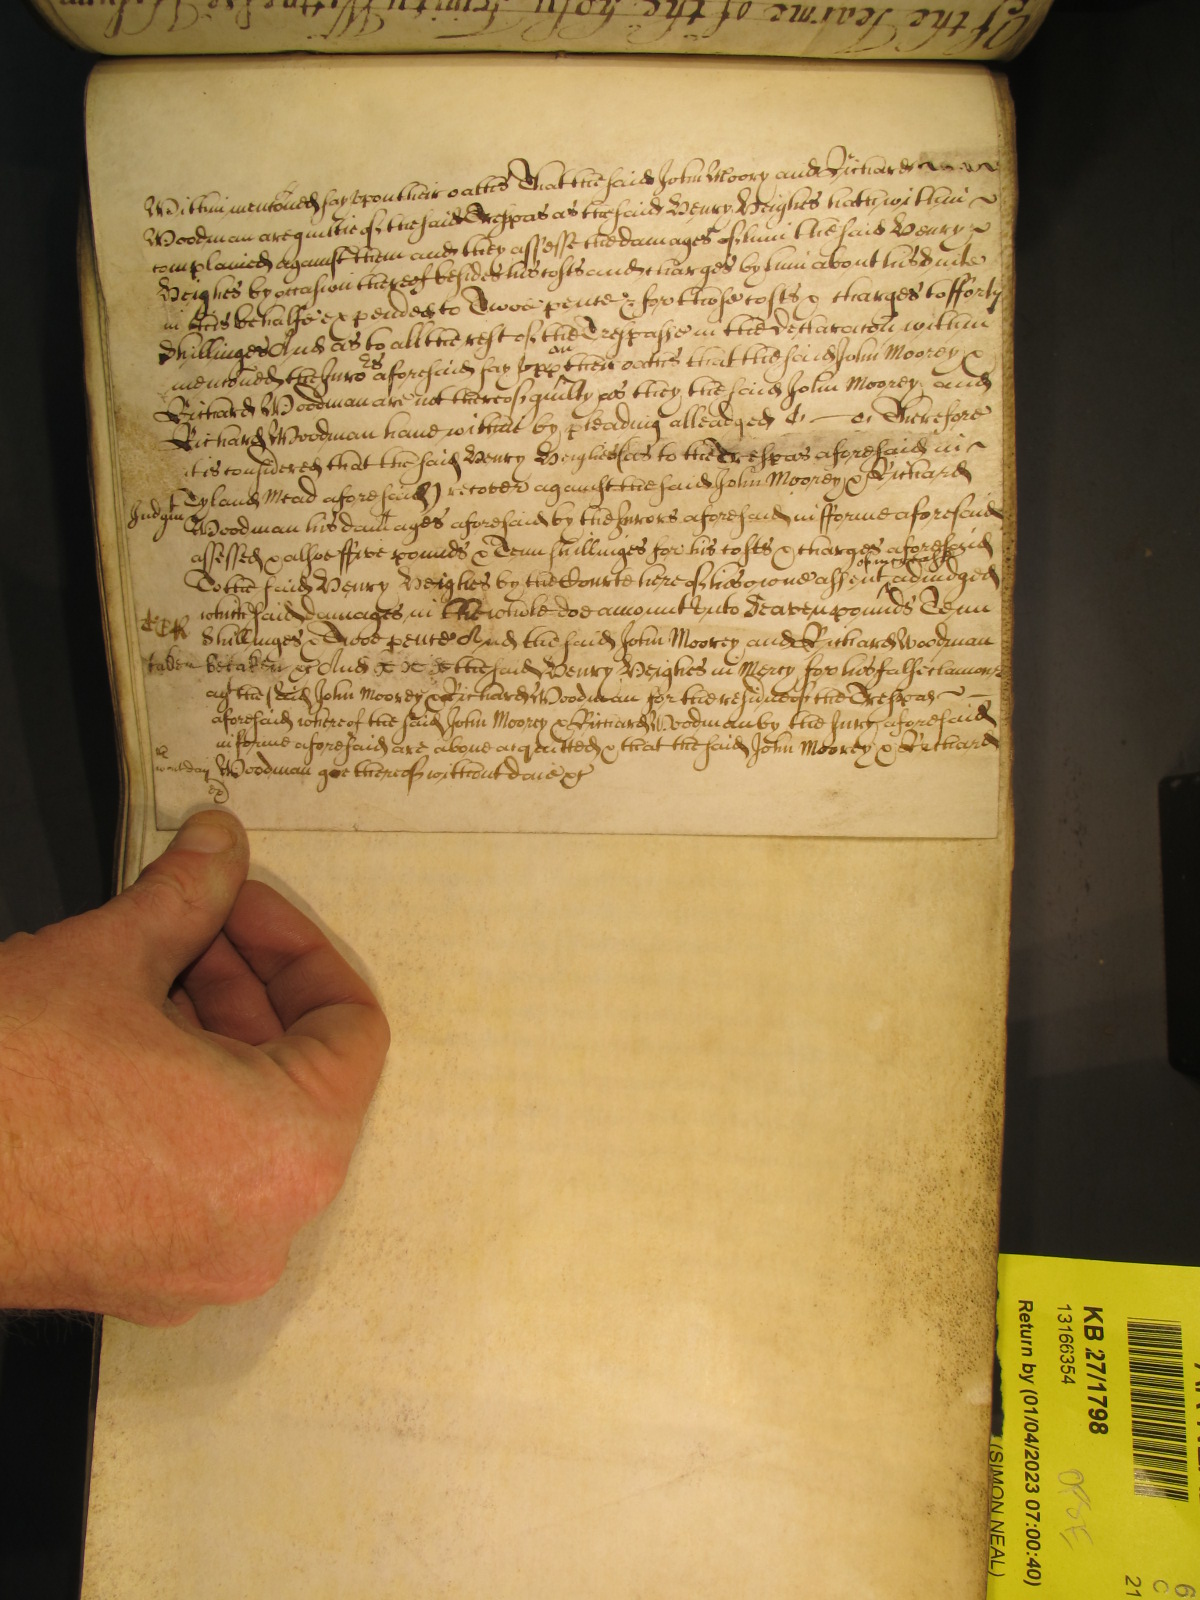 Of the Tearme of the holy Trinity Witnesse
Within mentioned say upon their oathes That the said John Moory and Richard
Woodman are guiltie of the said Trespas as the said Henry Heighes hath within
complained against them and they assesse the damages of him the said Henry
Heighes by occasion thereof besides his costs and charges by him about his suite
in this behalfe expended to Twoe pence & for those costs & charges to fforty
Shillinges And as to all the rest of the Trespasse in the declaracon within
mentioned the Jurors aforesaid say upon their oathes that the said John Moorey &
Richard Woodman are not thereof guilty as they the said John Moorey and
Richard Woodman have within by pleading alleadged &c Therefore
it is considered that the said Henry Heighes (as to the Trespas aforesaid in
Tyland Mead aforesaid) recover against the said John Moorey & Richard
Judgmt
Woodman his damages aforesaid by the Jurors aforesaid in fforme aforesaid
assessed & alsoe ffive pounds & Tenn shillinges for his costs & charges aforesaid
To the said Henry Heighes by the Courte here of his owne assent of increase adiudged
which said damages in the whole doe amount unto Seaven pounds Tenn
Shillinges & Twoe pence And the said John Moorey and Richard Woodman
taken
be taken &c And the said Henry Heighes in Mercy for his false clamour
agt the said John Moorey & Richard Woodman for the residue of the Trespas
aforesaid whereof the said John Moorey & Richard Woodman by the Jury aforesaid
in forme aforesaid are above acquitted & that the said John Moorey & Richard
without day
Woodman goe thereof without daie &c
KB 27/1798
13166354
Return by (01/04/2023 07:00:40)
(SIMON NEAL)
21